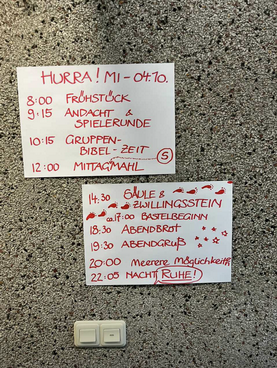 HURRA! MI - 04.10.
8:00 FRÜHSTÜCK
9:15 ANDACHT &
SPIELERUNDE
10:15 GRUPPEN-
BIBEL-ZEIT
5
12:00 MITTAGMAHL
14:30 SÄULE &
ZWILLINGSSTEIN
ca.17:00 BASTELBEGINN
18:30 ABENDBROT
19:30 ABENDGRUß
20:00 Meerere Möglichkeit
22:05 NACHTRUHE!